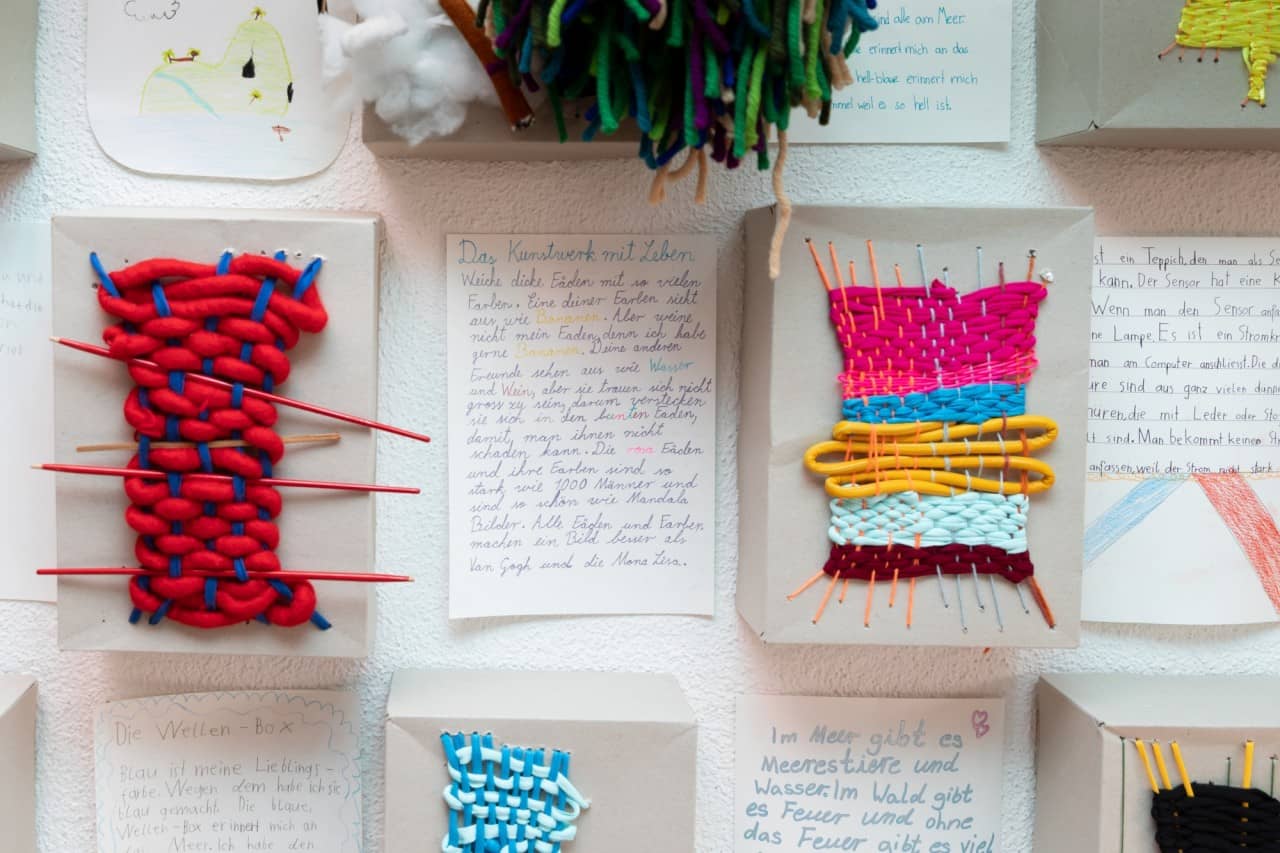 sind alle am Meer.
erinnert mich an das
hell-blaue erinnert mich
weil es so hell ist.
Das Kunstwerk mit Leben
Weiche dicke Fäden mit so vielen
Farben. Eine deiner Farben sieht
aus wie Bananen. Aber weine
nicht mein Faden, denn ich habe
gerne Bananen. Deine anderen
Freunde sehen aus wie Wasser
und Wein, aber sie trauen sich nicht
gross zu sein, darum verstecken
sie sich in den bunten Fäden,
damit man ihnen nicht
schaden kann. Die rosa Fäden
und ihre Farben sind so
stark wie 1000 Männer und
sind so schön wie Mandala
Bilder. Alle Fäden und Farben
machen ein Bild besser als
Van Gogh und die Mona Lisa.
ist ein Teppich, den man als
kann. Der Sensor hat eine
Wenn man den Sensor
Lampe. Es ist ein
man am Computer anschliesst. Die
sind aus ganz vielen
die mit Leder oder
sind. Man bekommt keinen
anfassen, weil der Strom nicht stark
Die Wellen-Box
Blau ist meine Lieblings-
farbe. Wegen dem habe ich sie
blau gemacht. Die blaue,
Wellen-Box erinnert mich an
Meer. Ich habe den
Im Meer gibt es
Meerestiere und
Wasser. Im Wald gibt
es Feuer und ohne
das Feuer gibt es viel